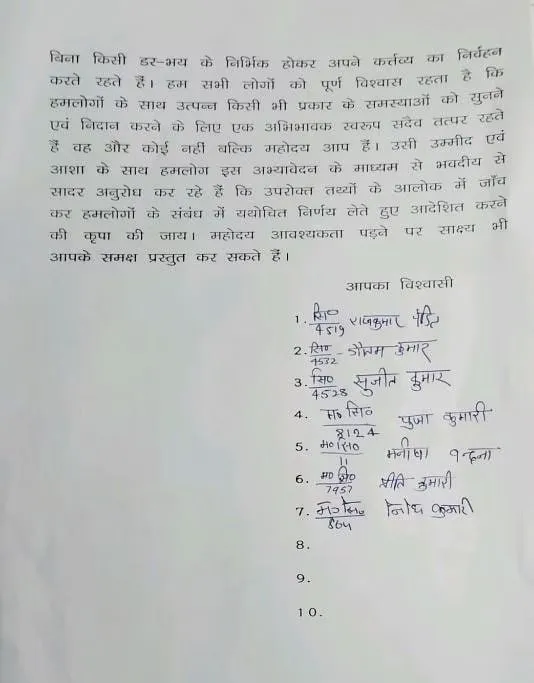 बिना किसी डर-भय के निर्भिक होकर अपने कर्त्तव्य का निर्वहन
करते रहते हैं। हम सभी लोगों को पूर्ण विश्वास रहता है कि
हमलोगों के साथ उत्पन्न किसी भी प्रकार के समस्याओं को सुनने
एवं निदान करने के लिए एक अभिभावक स्वरूप सदैव तत्पर रहते
हैं वह और कोई नहीं बल्कि महोदय आप है। उसी उम्मीद एवं
आशा के साथ हमलोग इस अभ्यावेदन के माध्यम से भवदीय से
सादर अनुरोध कर रहे हैं कि उपरोक्त तथ्यों के आलोक में जाँच
कर हमलोगों के संबंध में यथोचित निर्णय लेते हुए आदेशित करने
की कृपा की जाय। महोदय आवश्यकता पड़ने पर साक्ष्य भी
आपके समक्ष प्रस्तुत कर सकते हैं।
आपका विश्वासी
1. सि०/4519 राजकुमार
2. सि०/4532 - गौतम कुमार
3. सि०/4528 सुजीत कुमार
4. म० सि०/8124 पुजा कुमारी
5. म० सि०/11 मनीषा
6. म० सि०/7957 प्रीति कुमारी
7. म० सि०/864 कुमारी
8.
9.
10.